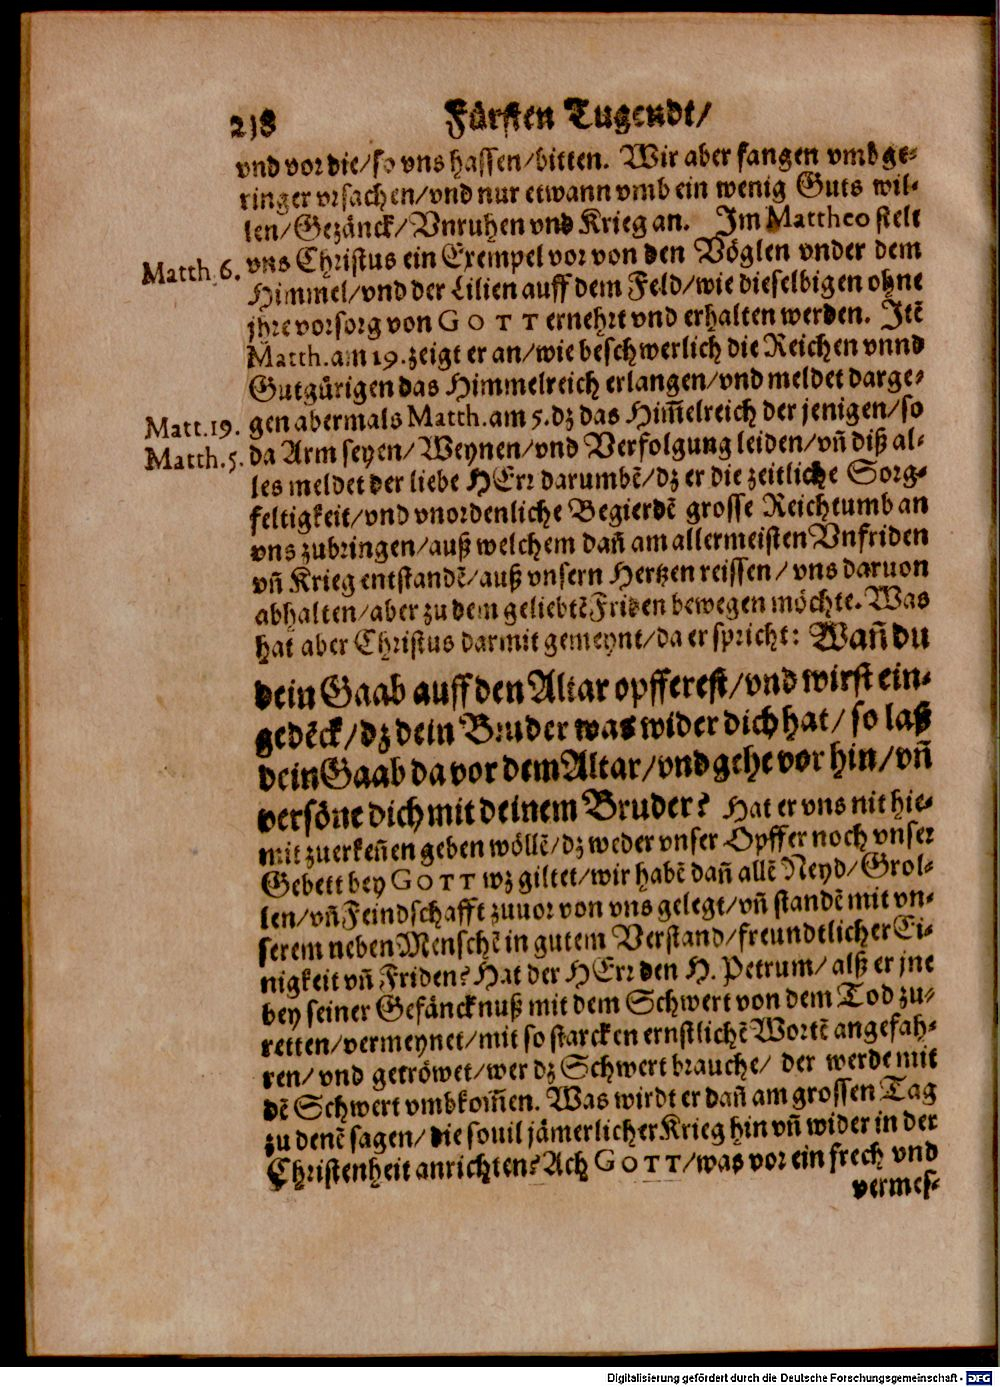 218 Fürsten Tugendt/
vnd vor die/so vns hassen/bitten. Wir aber fangen vmb ge-
ringer vrsachen/vnd nur etwann vmb ein wenig Guts wil-
len/Gezänck/Vnruhen vnd Krieg an. Im Mattheo stelt
Matth. 6. vns Christus ein Exempel vor von den Vöglen vnder dem
Himmel/vnd der Lilien auff dem Feld/wie dieselbigen ohne
jhre vorsorg von GOTT ernehrt vnd erhalten werden. Itē
Matth. am 19. zeigt er an/wie beschwerlich die Reichen vnnd
Gutgürigen das Himmelreich erlangen/vnd meldet darge-
Matt. 19. gen abermals Matth. am 5. dz das Him̄elreich der jenigen/so
Matth. 5. da Arm seyen/Weynen/vnd Verfolgung leiden/vn̄ diß al-
les meldet der liebe HErr darumbē/dz er die zeitliche Sorg-
feltigkeit/vnd vnordenliche Begierdē grosse Reichtumb an
vns zubringen/auß welchem dan̄ am allermeisten Vnfriden
vn̄ Krieg entstandē/auß vnsern Hertzen reissen/vns daruon
abhalten/aber zu dem geliebtē Friden bewegen möchte. Was
hat aber Christus darmit gemeynt/da er spricht: Wan̄ du
dein Gaab auff den Altar opfferest/vnd wirst ein-
gedēck/dz dein Bruder was wider dich hat/so laß
dein Gaab da vor dem Altar/vnd gehe vor hin/vn̄
versöne dich mit deinem Bruder? Hat er vns nit hie-
mit zuerken̄en geben wöllē/dz weder vnser Opffer noch vnser
Gebett bey GOTT wz giltet/wir habē dan̄ allē Neyd/Grol-
len/vn̄ Feindschafft zuuor von vns gelegt/vn̄ standē mit vn-
serem neben Menschē in gutem Verstand/freundtlicher Ei-
nigkeit vn̄ Friden? Hat der HErr den H. Petrum/alß er jne
bey seiner Gefäncknuß mit dem Schwert von dem Tod zu-
retten/vermeynet/mit so starcken ernstlichē Wortē angefah-
ren/vnd getröwet/wer dz Schwert brauche/der werde mit
dē Schwert vmbkom̄en. Was wirdt er dan̄ am grossen Tag
zu denē sagen/die souil jämerlicher Krieg hin vn̄ wider in der
Christenheit anrichten? Ach GOTT/was vor ein frech vnd
vermes-
Digitalisierung gefördert durch die Deutsche Forschungsgemeinschaft - DFG